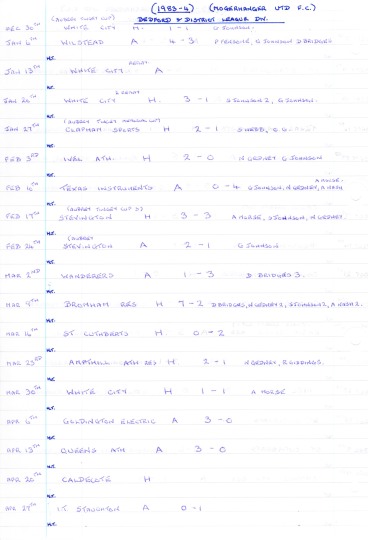 (1983-4) (MOGERHANGER UTD F.C.)
BEDFORD & DISTRICT LEAGUE DIV.
(AUBREY TINGEY CUP)
DEC 30TH WHITE CITY H. 1-1 G JOHNSON.
JAN 6TH WILSTEAD A 4-3 P PERSONS, G JOHNSON D BRIDGES
H.T.
REPLAY
JAN 13TH WHITE CITY A
H.T.
2 REPLAY
JAN 20TH WHITE CITY H. 3-1 G JOHNSON 2, G JOHNSON.
H.T.
(AUBREY TINGEY MEMORIAL CUP)
JAN 27TH CLAPHAM SPORTS H 2-1 S WEBB, O.G.
H.T.
FEB 3RD IVAL ATH. H 2-0 N GEDNEY G JOHNSON
H.T.
A MORSE.
FEB 10TH TEXAS INSTRUMENTS A 0-4 G JOHNSON, N GEDNEY, A NASH
H.T.
(AUBREY TINGEY CUP)
FEB 17TH STEVINGTON H 3-3 A MORSE, G JOHNSON, N GEDNEY.
H.T.
(AUBREY
FEB 24TH STEVINGTON A 2-1 G JOHNSON.
H.T.
MAR 2ND WANDERERS A 1-3 D BRIDGES 3.
H.T.
MAR 9TH BROMHAM RES H 7-2 D BRIDGES, N GEDNEY 2, G JOHNSON 2, A NASH 2.
H.T.
MAR 16TH ST CUTHBERTS H 0-2
H.T.
MAR 23RD AMPTHILL ATH RES H. 2-1 N GEDNEY, R GIDDINGS.
H.T.
MAR 30TH WHITE CITY H 1-1 A MORSE
H.T.
APR 6TH GOLDINGTON ELECTRIC A 3-0
H.T.
APR 13TH QUEENS ATH A 3-0
H.T.
APR 20TH CALDECOTE H
H.T.
APR 27TH LT. STAUGHTON A 0-1
H.T.